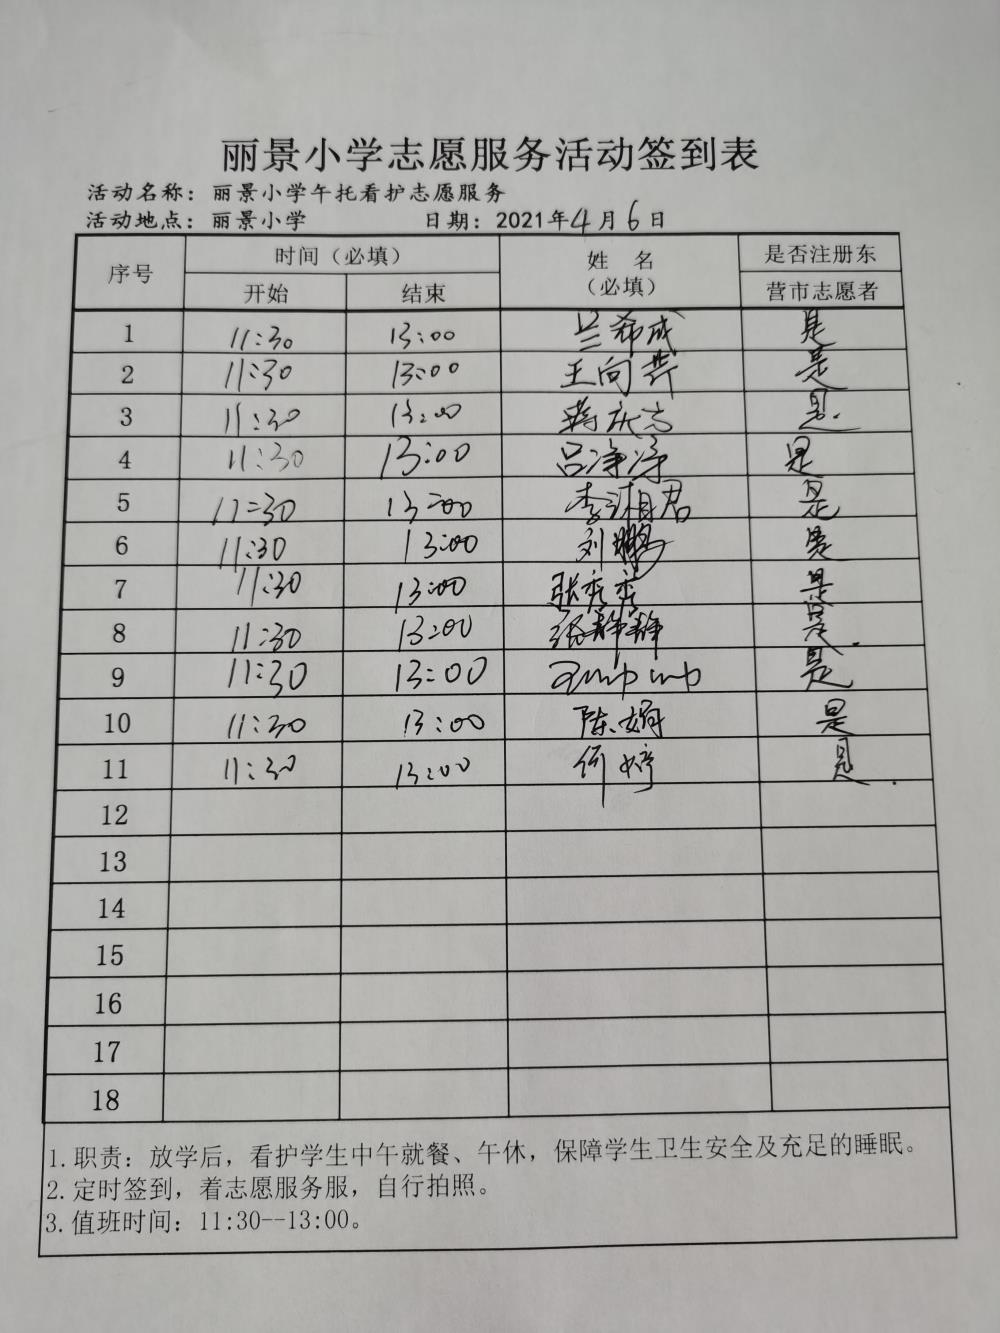 丽景小学志愿服务活动签到表
活动名称：丽景小学午托看护志愿服务
活动地点：丽景小学 日期：2021年4月6日
序号 时间（必填） 姓 名（必填） 是否注册东营市志愿者
开始 结束
1 11:30 13:00 兰希成 是
2 11:30 13:00 王向芹 是
3 11:30 13:00 蒋庆 是
4 11:30 13:00 吕净净 是
5 11:30 13:00 李湘君 是
6 11:30 13:00 刘鹏 是
7 11:30 13:00 张秀秀 是
8 11:30 13:00 张静静 是
9 11:30 13:00 是
10 11:30 13:00 陈娟 是
11 11:30 13:00 何婷 是
12
13
14
15
16
17
18
1.职责：放学后，看护学生中午就餐、午休，保障学生卫生安全及充足的睡眠。
2.定时签到，着志愿服务服，自行拍照。
3.值班时间：11:30--13:00。